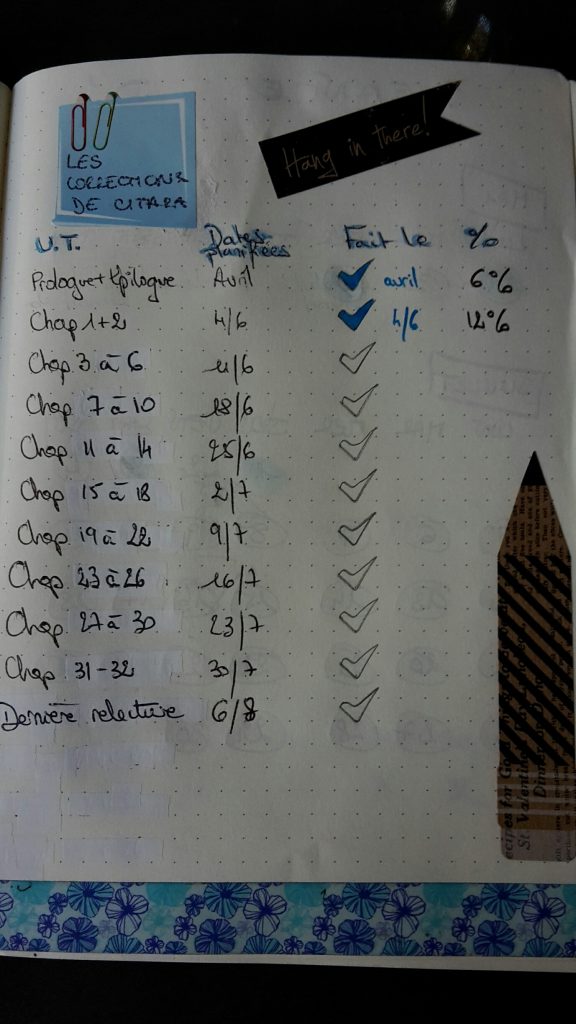 LES
COLLECTIONS
DE CITARA
Hang in there!
U.T. Dates planifiées Fait le %
Prologue + Epilogue Avril avril 6%
Chap 1+2 4/6 4/6 12%
Chap 3 à 6 11/6
Chap 7 à 10 18/6
Chap 11 à 14 25/6
Chap 15 à 18 2/7
Chap 19 à 22 9/7
Chap 23 à 26 16/7
Chap 27 à 30 23/7
Chap 31-32 30/7
Dernière relecture 6/8
ecipes for Go
St. Valentin
Dinner